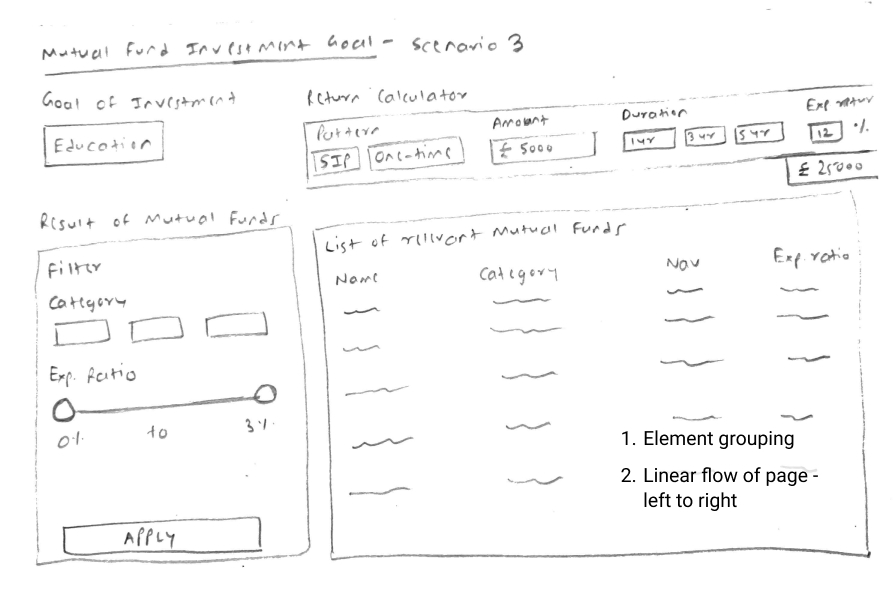 Mutual Fund Investment Goal - Scenario 3
Goal of Investment
Education
Return Calculator
Pattern
SIP
One-time
Amount
£ 5000
Duration
1 yr
3 yr
5 yr
Exp return
12 %
£ 25000
Result of Mutual Funds
Filter
Category
Exp. Ratio
0% to 3%
APPLY
List of relevant Mutual Funds
Name Category Nav Exp. ratio
1. Element grouping
2. Linear flow of page -
left to right